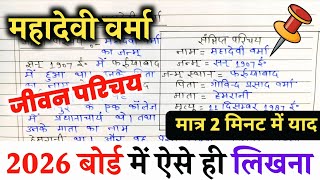 महादेवी वर्मा
जीवन परिचय
का जन्म
सन् 1907 ई० में फर्रुखाबाद
में हुआ था
के एक कॉलेज
में प्रधानाचार्य थे। तथा
उनके माता का नाम
हेमरानी
संक्षिप्त परिचय
नाम = महादेवी वर्मा
जन्म = सन् 1907 ई०
जन्म स्थान = फर्रुखाबाद
पिता = गोविन्द प्रसाद वर्मा
माता = हेमरानी
मृत्यु = 11 दिसम्बर 1987 ई०
मात्र 2 मिनट में याद
2026 बोर्ड में ऐसे ही लिखना